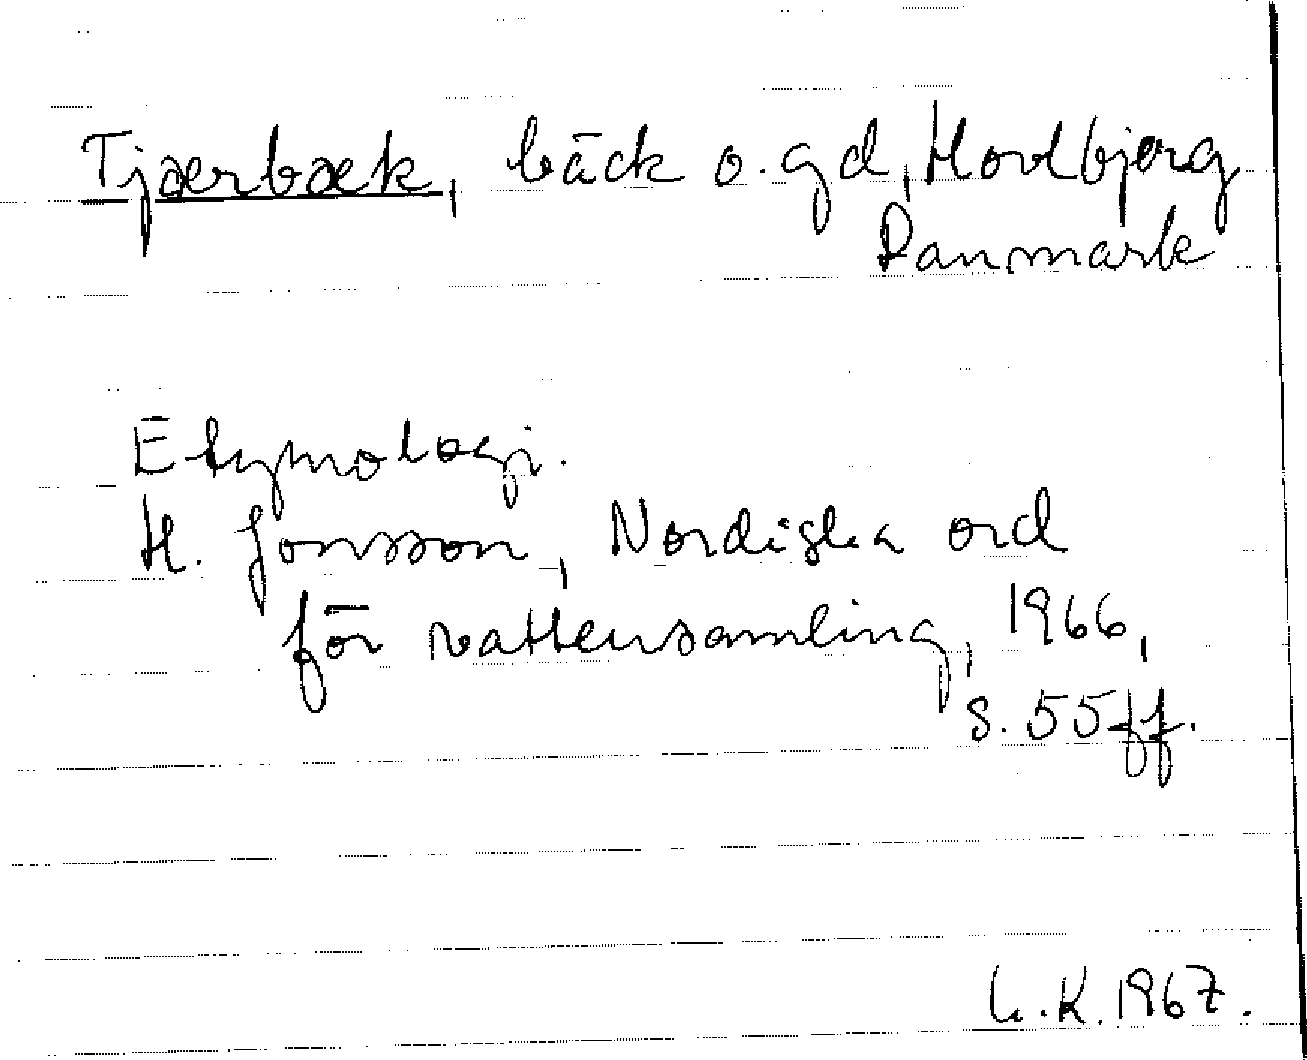 Tjærbæk, bäck o. gd, Houlbjerg
Danmark
Etymologi.
H. Jonsson, Nordiska ord
för vattensamling, 1966,
s. 55 ff.
K. 1967.